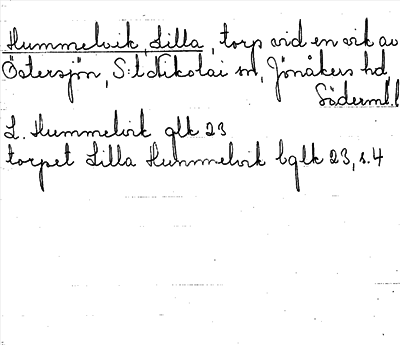 Hummelvik, Lilla, torp vid en vik av
Östersjön, S:t Nikolai sn, Jönåkers hd,
Söderml.l
L. Hummelvik glk 23
torpet Lilla Hummelvik bglk 23, s.4